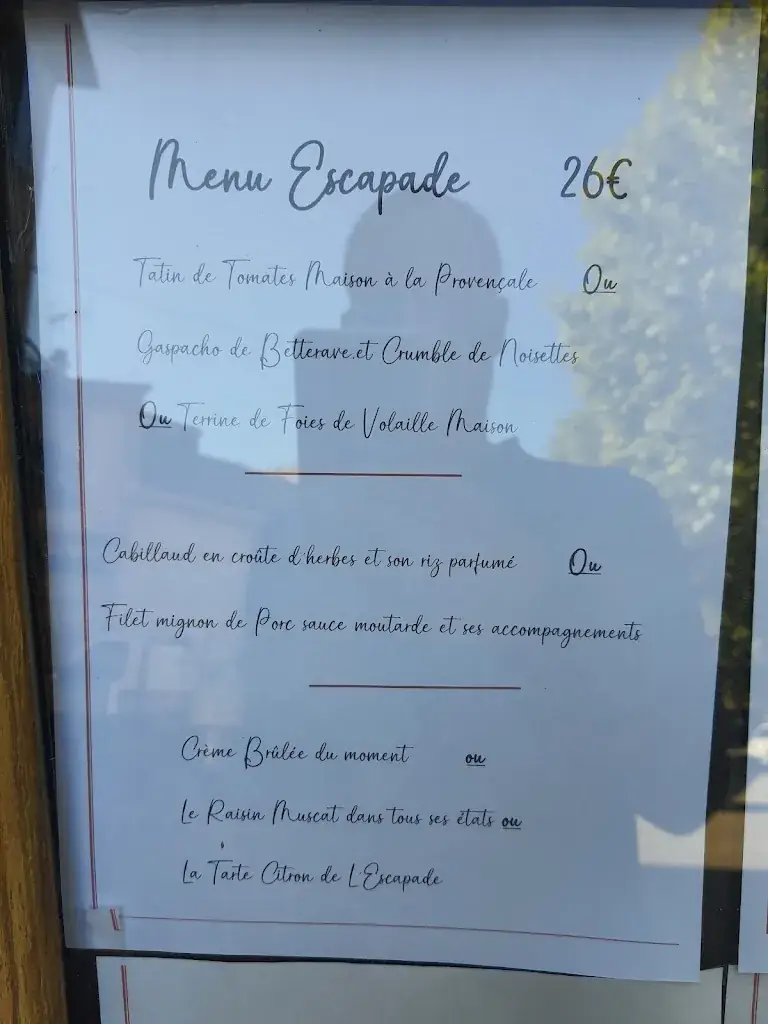 Menu Escapade 26€
Tatin de Tomates Maison à la Provençale Ou
Gaspacho de Betterave.et Crumble de Noisettes
Ou Terrine de Foies de Volaille Maison
Cabillaud en croûte d'herbes et son riz parfumé Ou
Filet mignon de Porc sauce moutarde et ses accompagnements
Crème Brûlée du moment ou
Le Raisin Muscat dans tous ses états ou
La Tarte Citron de L'Escapade